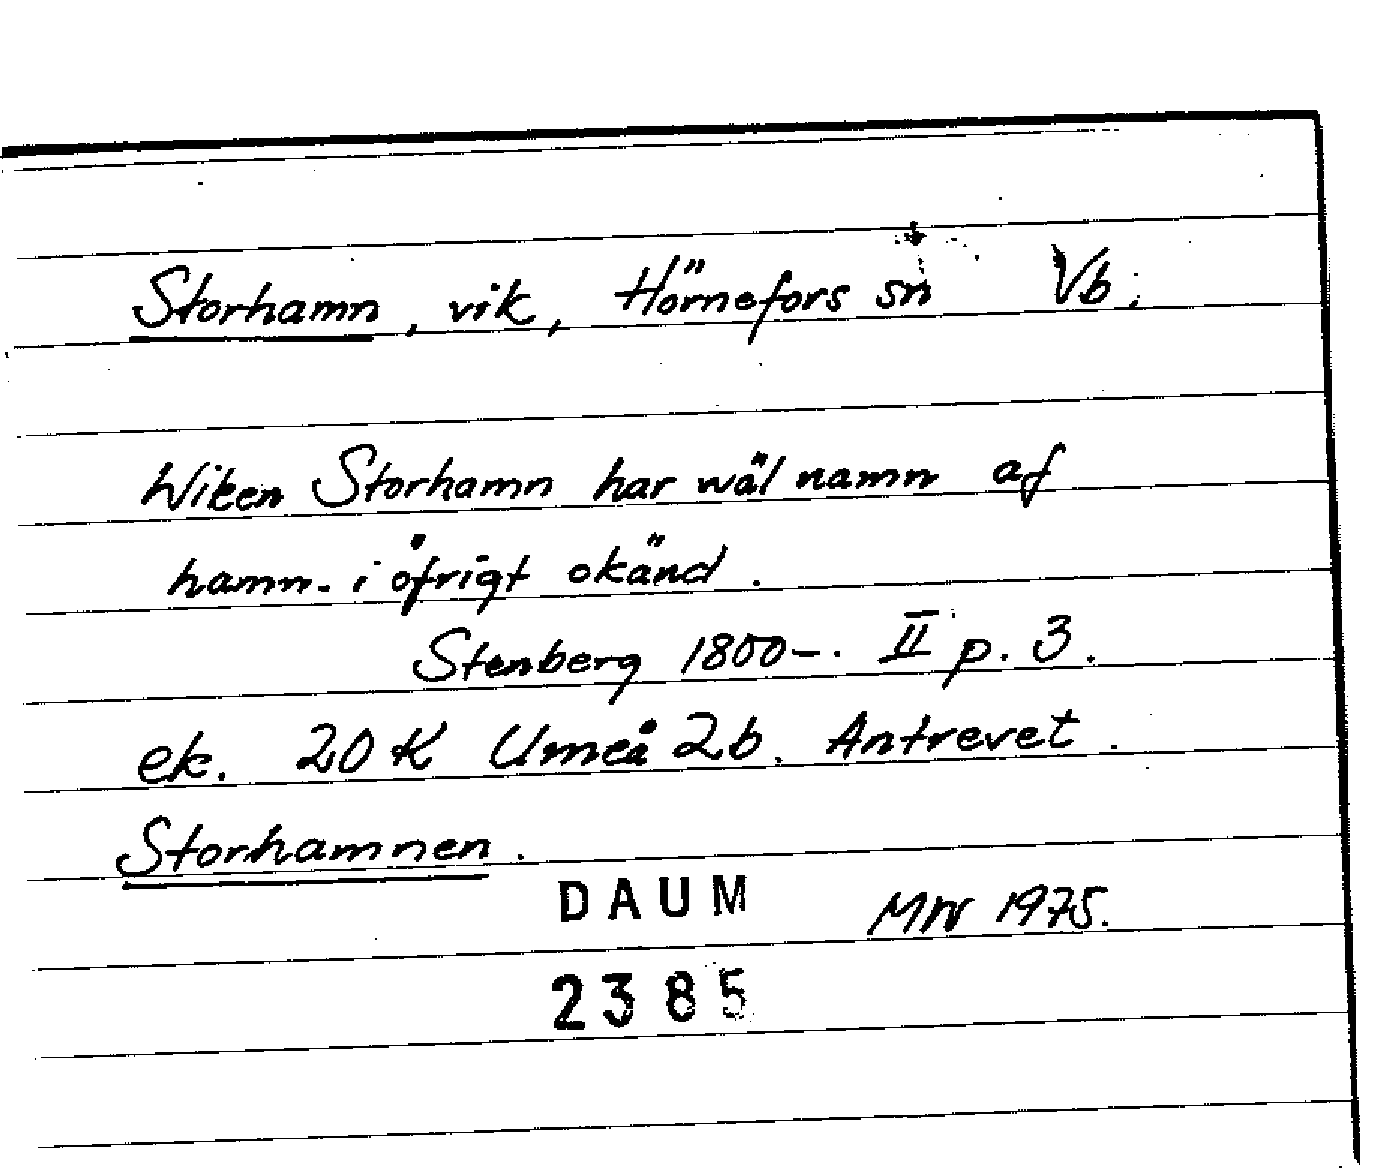 Storhamn, vik, Hörnefors sn Vb.
Wiken Storhamn har wäl namn af
hamn. i öfrigt okänd.
Stenberg 1800-. II p. 3.
ek. 20 K Umeå 2b. Antrevet.
Storhamnen.
DAUM MW 1975.
2385